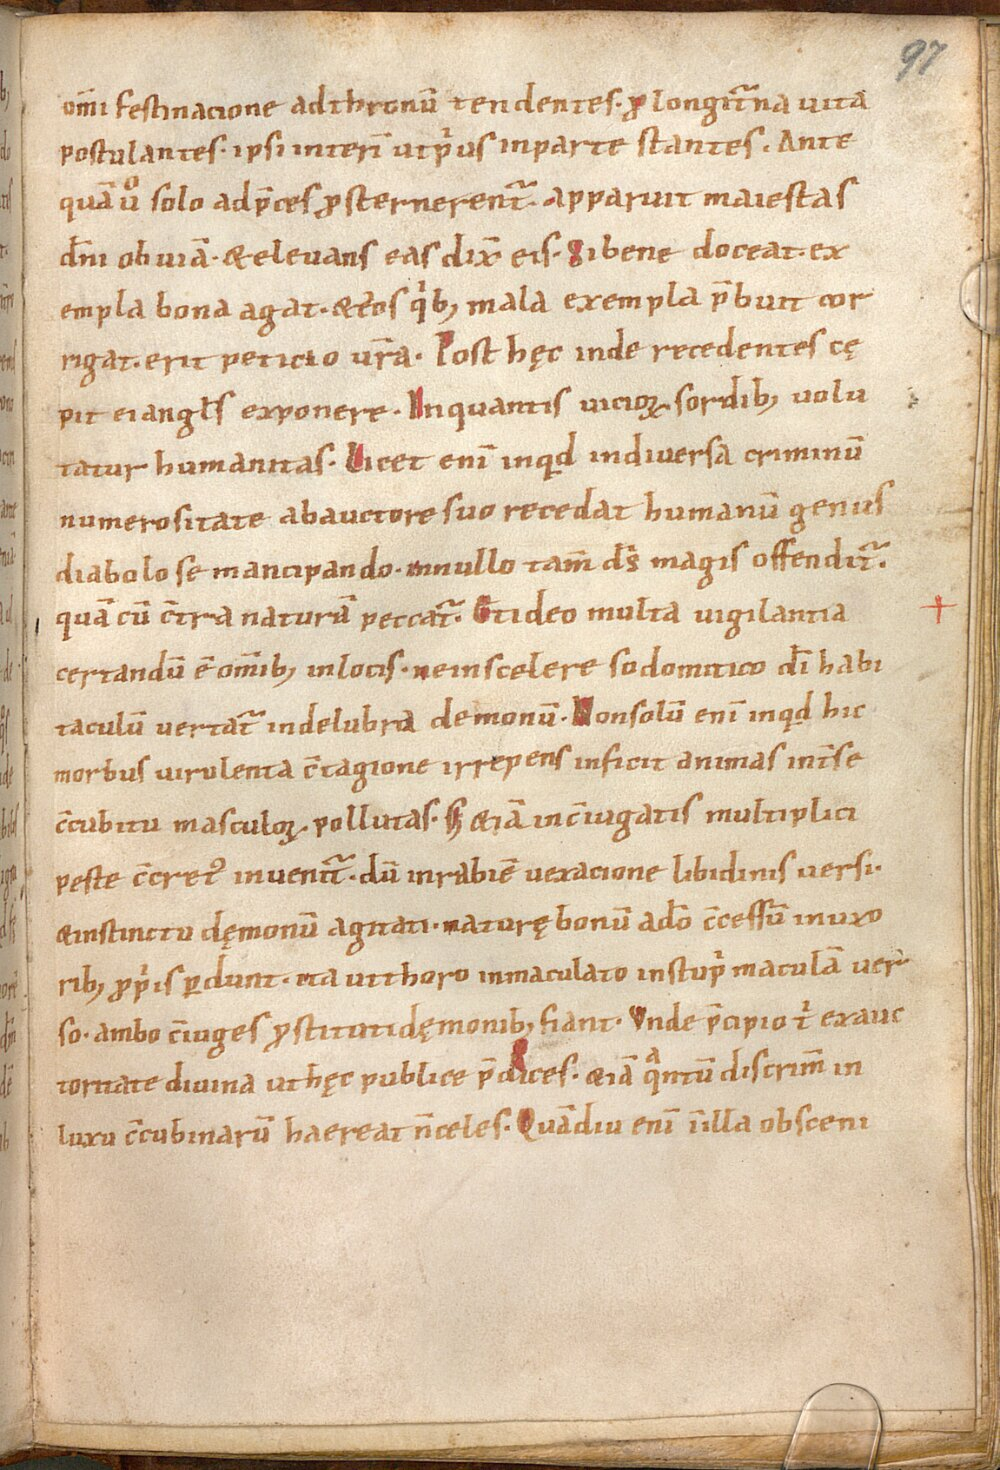 97
om̄i festinacione ad thronū tendentes · ꝓ longit̄na vita
postulantes · ipsi interī ut pͥus in parte stantes . Ante
quā ůo solo ad p̄ces ꝓsternerent̄ · apparuit maiestas
dn̄i obviā · & elevans eas dix̄ eis · Si bene doceat · ex
empla bona agat · & eos qͥb; mala exempla p̄buit cor
rigat · erit peticio vr̄a · Post hęc inde recedentes cę
pit ei angl̄s exponere · In quantis vicioꝝ sordib; volu
tatur humanitas · Licet enī inqd in diversa criminū
numerositate ab auctore suo recedat humanū genus
diabolo se mancipando · in nullo tam̄ ds̄ magis offendit̄ ·
quā cū c̄tra naturā peccat̄ · Et ideo multa vigilantia
certandū ē om̄ib; in locis · ne in scelere sodomitico dī habi
taculū vertat̄ in delubra demonū · Non solū enī inqd hic
morbus virulenta c̄tagione irrepens inficit animas int̄ se
c̄cubitu masculoꝝ pollutas · S; & iā in c̄iugatis multiplici
peste c̄cret᾽ invenit̄ · dū in rabiē vexacione libidinis versi ·
& instinctu dęmonū agitati · naturę bonū a dō c̄cessū in uxo
rib; ꝓpͥis ꝑdunt · ita ut thoro inmaculato in stupͥ maculā ver
so · ambo c̄iuges ꝓstituti dęmonib; fiant · Unde p̄cipio tͥ exauc
toritate divina ut hęc publice p̄dices · & iā qͣntū discrim̄ in
luxu c̄cubinarū haereat n̄ celes · Quādiu enī ī illa obsceni